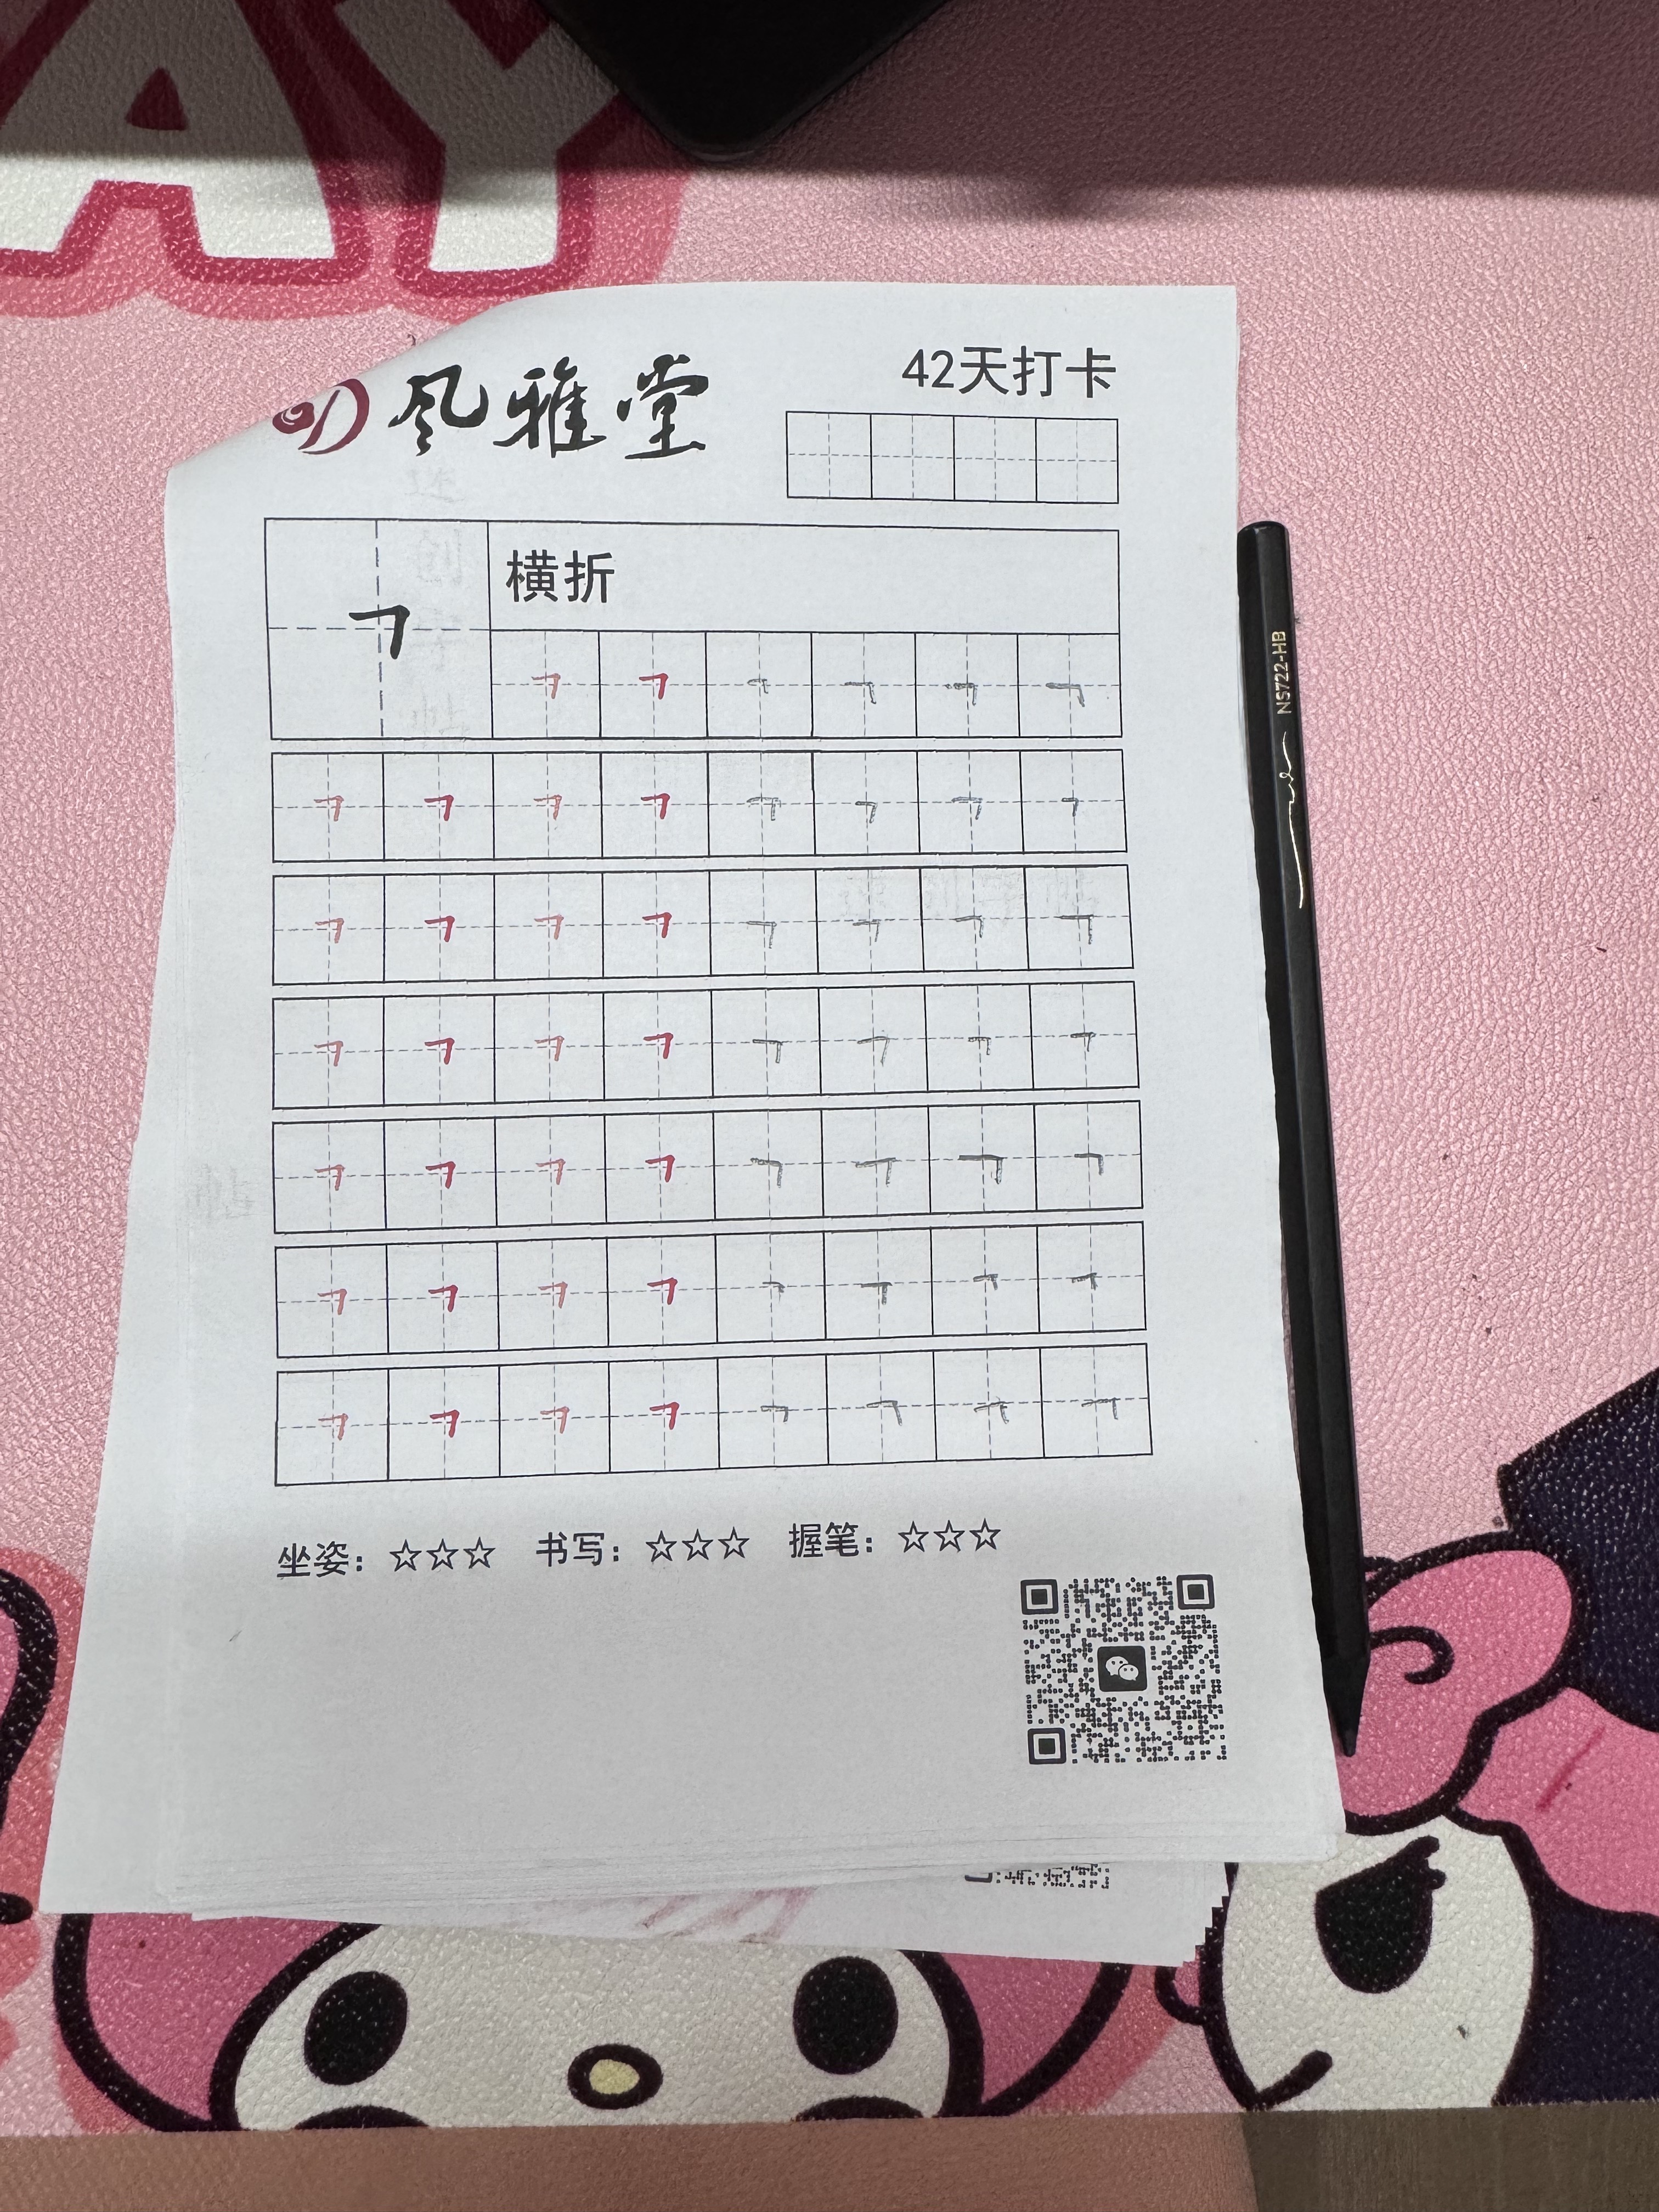 AY
风雅堂
42天打卡
横折
坐姿：☆☆☆ 书写：☆☆☆ 握笔：☆☆☆
NS722-HB